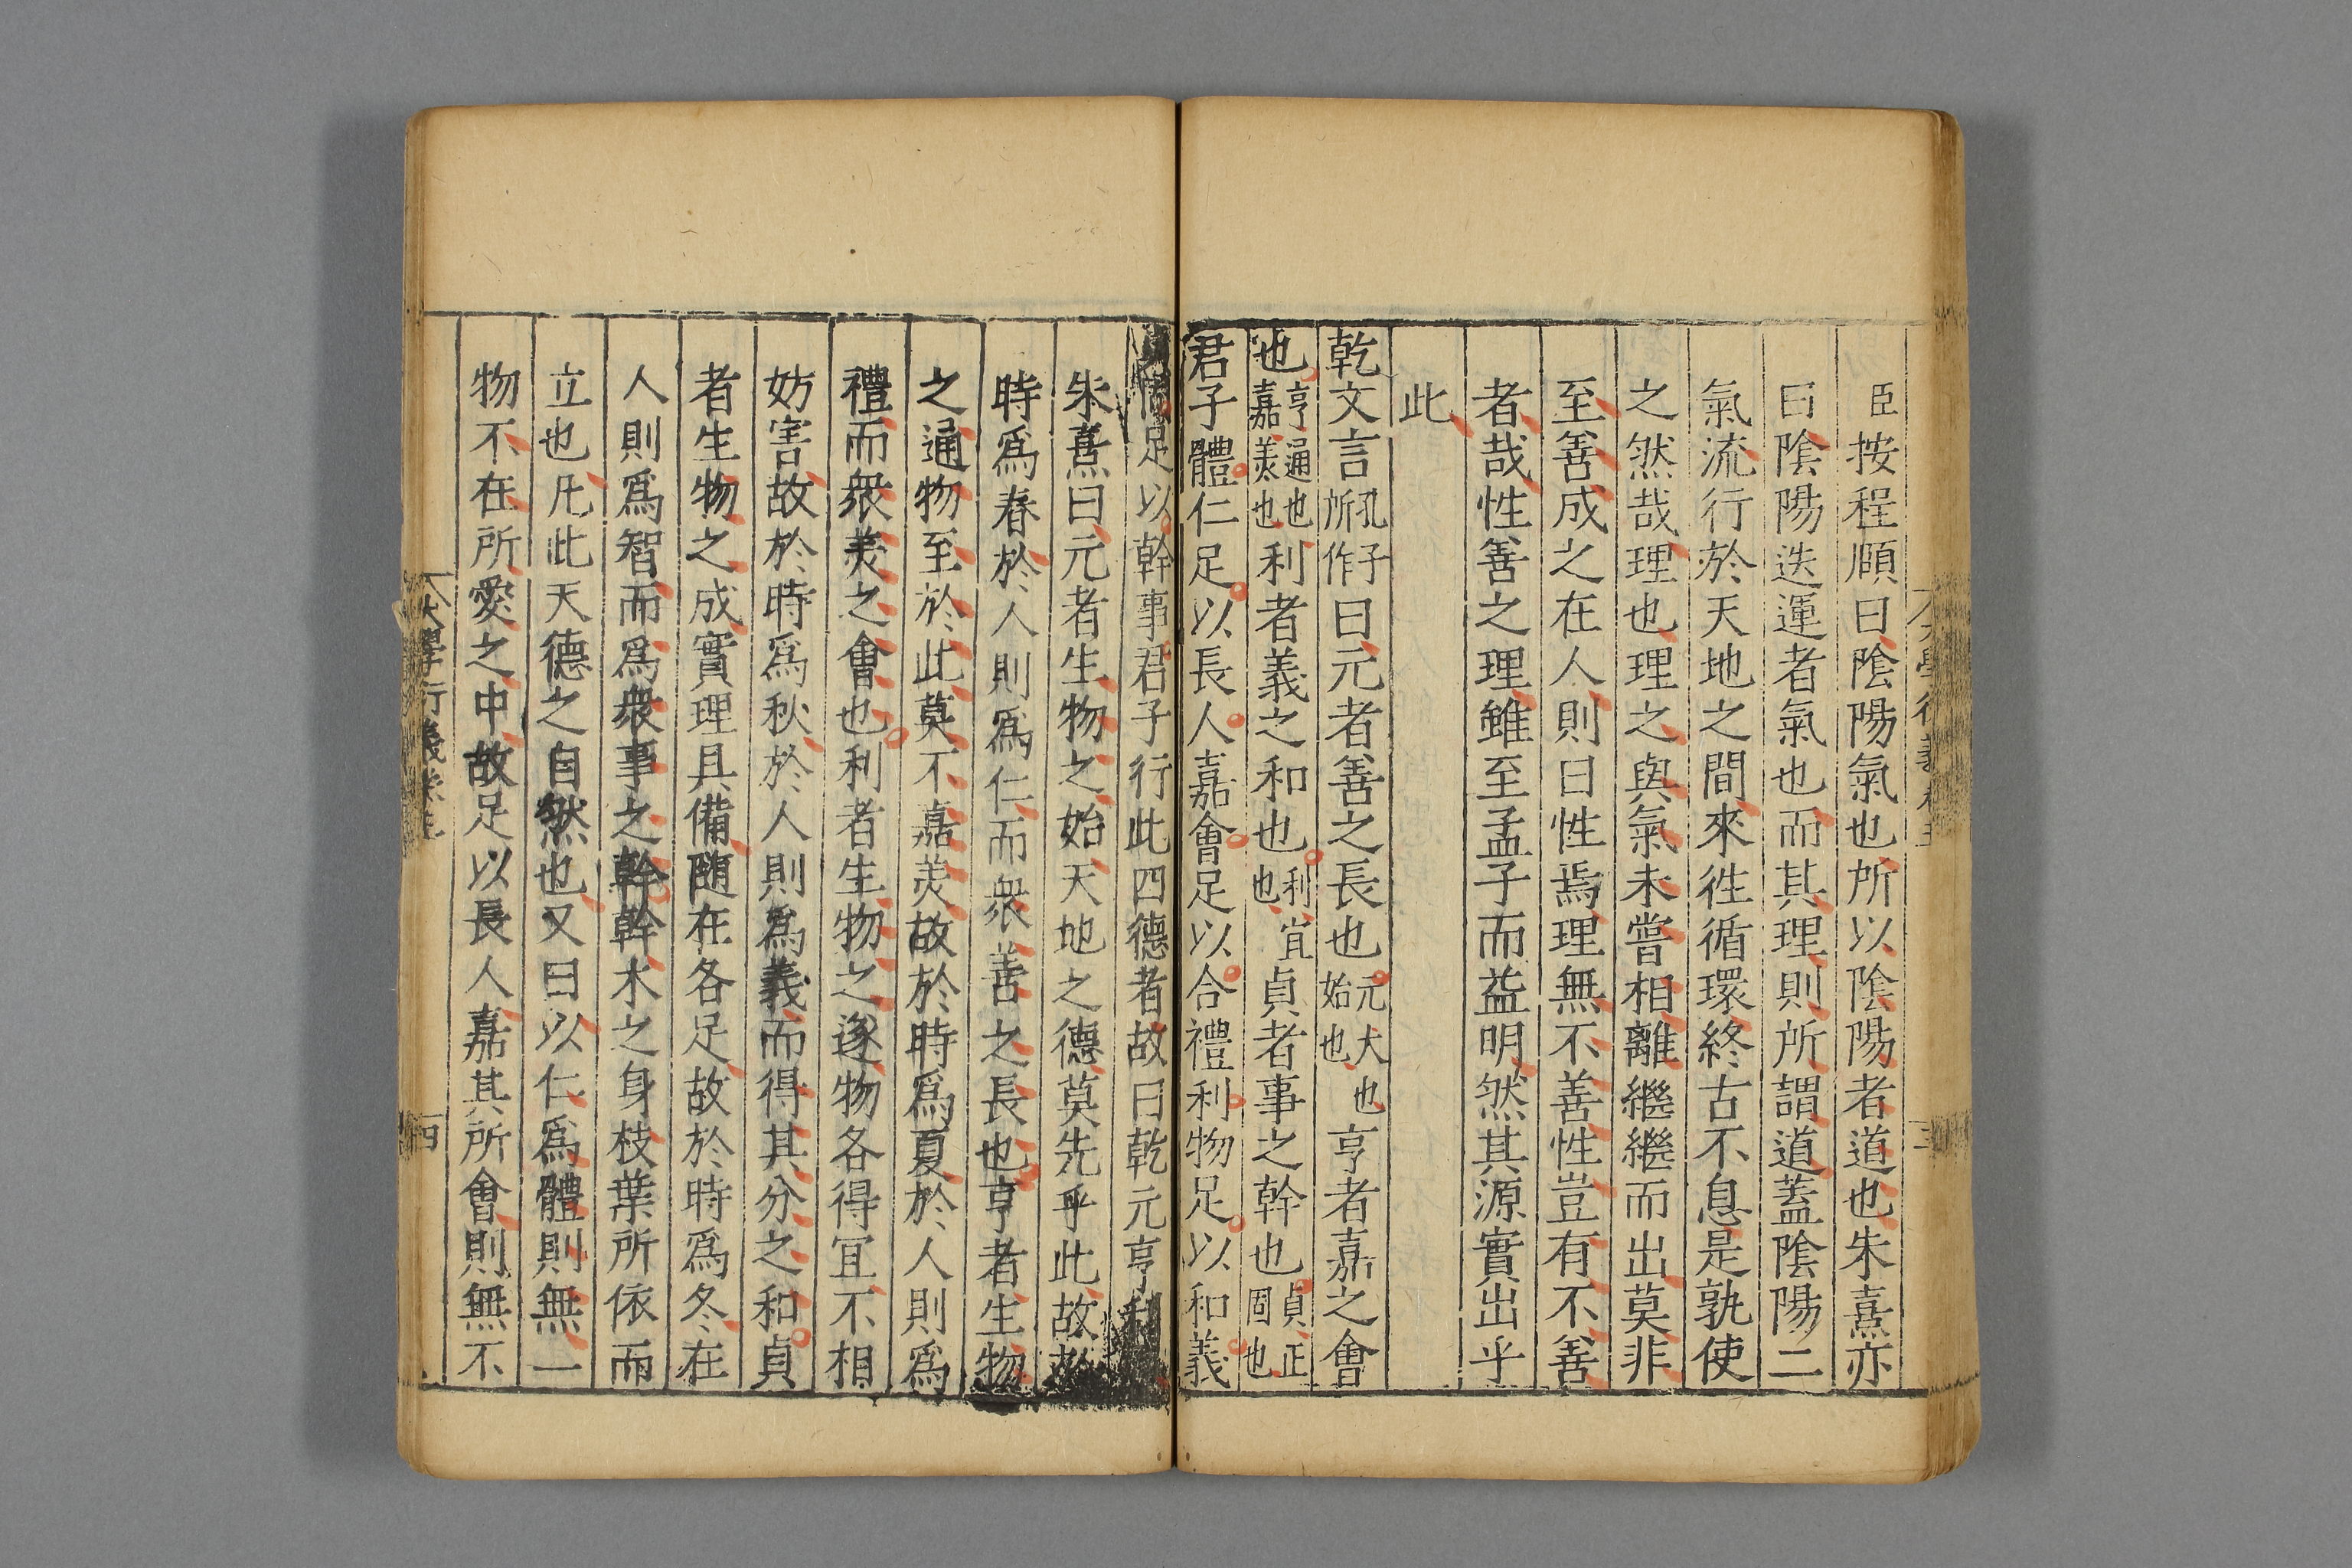 臣按程頤曰隂陽氣也所以隂陽者道也朱熹亦
曰隂陽迭運者氣也而其理則所謂道蓋隂陽二
氣流行於天地之間來徃循環終古不息是孰使
之然哉理也理之與氣未嘗相離繼繼而出莫非
至善成之在人則曰性焉理無不善性豈有不善
者哉性善之理雖至孟子而益明然其源實出乎
此
乾文言孔子所作曰元者善之長也元大也始也亨者嘉之會
也亨通也嘉羙也利者義之和也利宜也貞者事之幹也貞正也固也
君子體仁足以長人嘉會足以合禮利物足以和義
貞固足以幹事君子行此四德者故曰乾元亨利
朱熹曰元者生物之始天地之德莫先乎此故於
時爲春於人則爲仁而衆善之長也亨者生物
之通物至於此莫不嘉羙故於時爲夏於人則爲
禮而衆羙之會也利者生物之遂物各得冝不相
妨害故於時爲秋於人則爲義而得其分之和貞
者生物之成實理具備隨在各足故於時爲冬在
人則爲智而爲衆事之幹幹木之身枝葉所依而
立也凡此天德之自然也又曰以仁爲體則無一
物不在所愛之中故足以長人嘉其所會則無不
大學衍義卷五
四